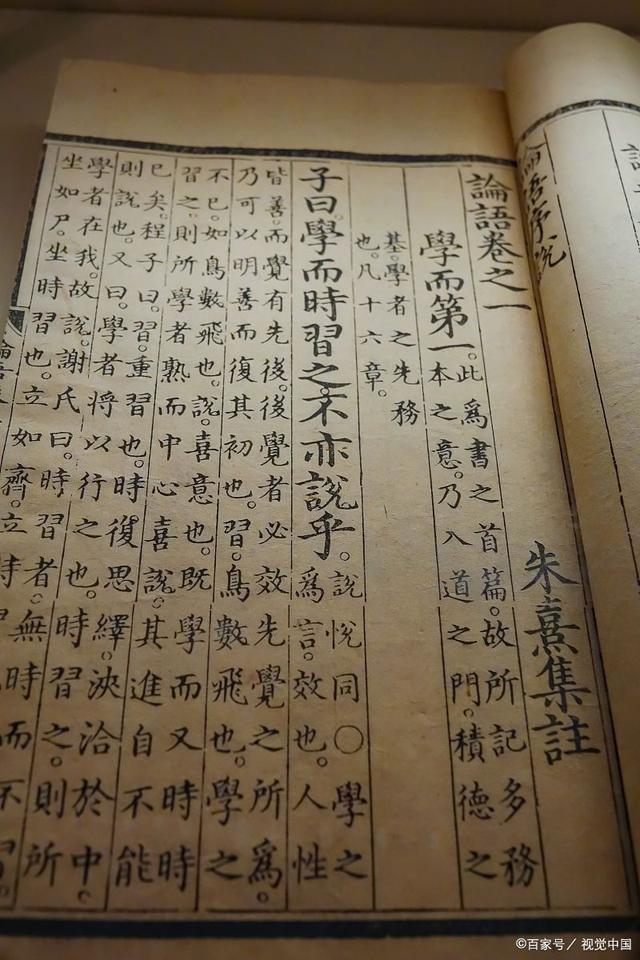 論語序說
論語卷之一
朱熹集註
學而第一。
此為書之首篇。故所記多務
本之意。乃入道之門。積德之
基。學者之先務
也。凡十六章。
子曰。學而時習之。不亦說乎。
說悅同○學之
為言。效也。人性
皆善。而覺有先後。後覺者必效先覺之所為。
乃可以明善而復其初也。習。鳥數飛也。學之
不已。如鳥數飛也。說。喜意也。既學而又時時
習之。則所學者熟而中心喜說。其進自不能
已矣。程子曰。習重習也。時復思繹。浹洽於中。
則說也。又曰。學者將以行之也。時習之。則所
學者在我。故說。謝氏曰。時習者。無時而不習。
坐如尸。坐時習也。立如齊。立時
©百家号／视觉中国